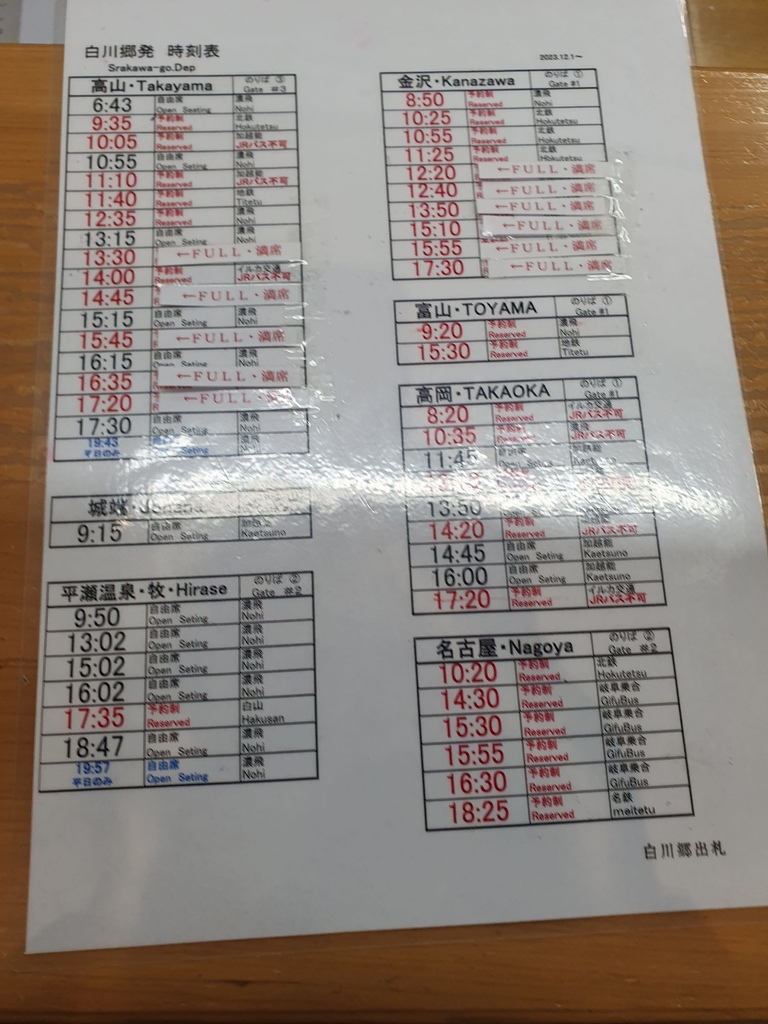 白川郷発 時刻表
Srakawa-go.Dep
2023.12.1~
高山・Takayama のりば ③ Gate #3
6:43 自由席 Open Seating 濃飛 Nohi
9:35 予約制 Reserved 北鉄 Hokutetsu
10:05 予約制 Reserved 加越能 JRバス不可
10:55 自由席 Open Seting 濃飛 Nohi
11:10 予約制 Reserved 加越能 JRバス不可
11:40 予約制 Reserved 地鉄 Titetu
12:35 予約制 Reserved 濃飛 Nohi
13:15 自由席 Open Seting 濃飛 Nohi
13:30 ←FULL・満席
14:00 予約制 Reserved イルカ交通 JRバス不可
14:45 ←FULL・満席
15:15 自由席 Open Seting 濃飛 Nohi
15:45 ←FULL・満席
16:15 自由席 Open Seting 濃飛 Nohi
16:35 ←FULL・満席
17:20 ←FULL・満席
17:30 自由席 Open Seting 濃飛 Nohi
19:43 平日のみ Open Seting Nohi
城端・
9:15 自由席 Open Seting 加越能 Kaetsuno
平瀬温泉・牧・Hirase のりば ② Gate #2
9:50 自由席 Open Seting 濃飛 Nohi
13:02 自由席 Open Seting 濃飛 Nohi
15:02 自由席 Open Seting 濃飛 Nohi
16:02 自由席 Open Seting 濃飛 Nohi
17:35 予約制 Reserved 白山 Hakusan
18:47 自由席 Open Seting 濃飛 Nohi
19:57 平日のみ 自由席 Open Seting 濃飛 Nohi
金沢・Kanazawa のりば ① Gate #1
8:50 予約制 Reserved 濃飛 Nohi
10:25 予約制 Reserved 北鉄 Hokutetsu
10:55 予約制 Reserved 北鉄 Hokutetsu
11:25 予約制 Reserved 北鉄 Hokutetsu
12:20 ←FULL・満席
12:40 ←FULL・満席
13:50 ←FULL・満席
15:10 ←FULL・満席
15:55 ←FULL・満席
17:30 ←FULL・満席
富山・TOYAMA のりば ① Gate #1
9:20 予約制 Reserved 濃飛 Nohi
15:30 予約制 Reserved 地鉄 Titetu
高岡・TAKAOKA のりば ① Gate #1
8:20 予約制 Reserved イルカ交通 JRバス不可
10:35 予約制 Reserved JRバス不可
11:45 自由席 Open Seting 加越能 Kaetsuno
13:50 Open Seting
14:20 予約制 Reserved 加越能 JRバス不可
14:45 自由席 Open Seting 加越能 Kaetsuno
16:00 自由席 Open Seting 加越能 Kaetsuno
17:20 予約制 Reserved イルカ交通 JRバス不可
名古屋・Nagoya のりば ② Gate #2
10:20 予約制 Reserved 北鉄 Hokutetsu
14:30 予約制 Reserved 岐阜乗合 GifuBus
15:30 予約制 Reserved 岐阜乗合 GifuBus
15:55 予約制 Reserved 岐阜乗合 GifuBus
16:30 予約制 Reserved 岐阜乗合 GifuBus
18:25 予約制 Reserved 名鉄 meitetu
白川郷出札